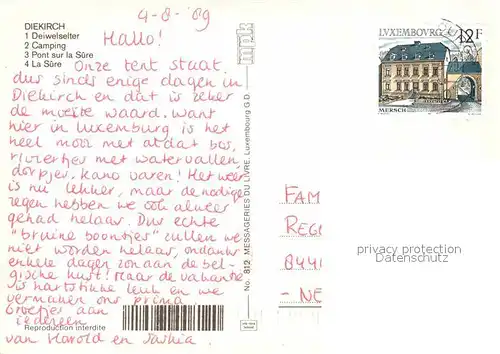 DIEKIRCH
1 Deiwelselter
2 Camping
3 Pont sur la Sûre
4 La Sûre
4-8-'89
Hallo!
Onze tent staat
dus sinds enige dagen in
Diekirch en dat is zeker
de moeite waard. Want
hier in Luxemburg is het
heel mooi met al dat bos,
riviertjes met watervallen
dorpjes. kano varen! Het weer
is nu lekker, maar de nodige
regen hebben we ook alweer
gehad helaas. Dus echte
"bruine boontjes" zullen we
niet worden helaas, ondanks
enkele dagen zon aan de bel-
gische kust! Maar de vakantie
is hartstikke leuk en we
vermaken ons prima
Groetjes aan
iedereen
van Harold en Saskia
Reproduction interdite
mpk
No. 812 MESSAGERIES DU LIVRE, Luxembourg G.D.
LUXEMBOURG 12F
MERSCH
FAM
REG
844
- NE
privacy protection
Datenschutz